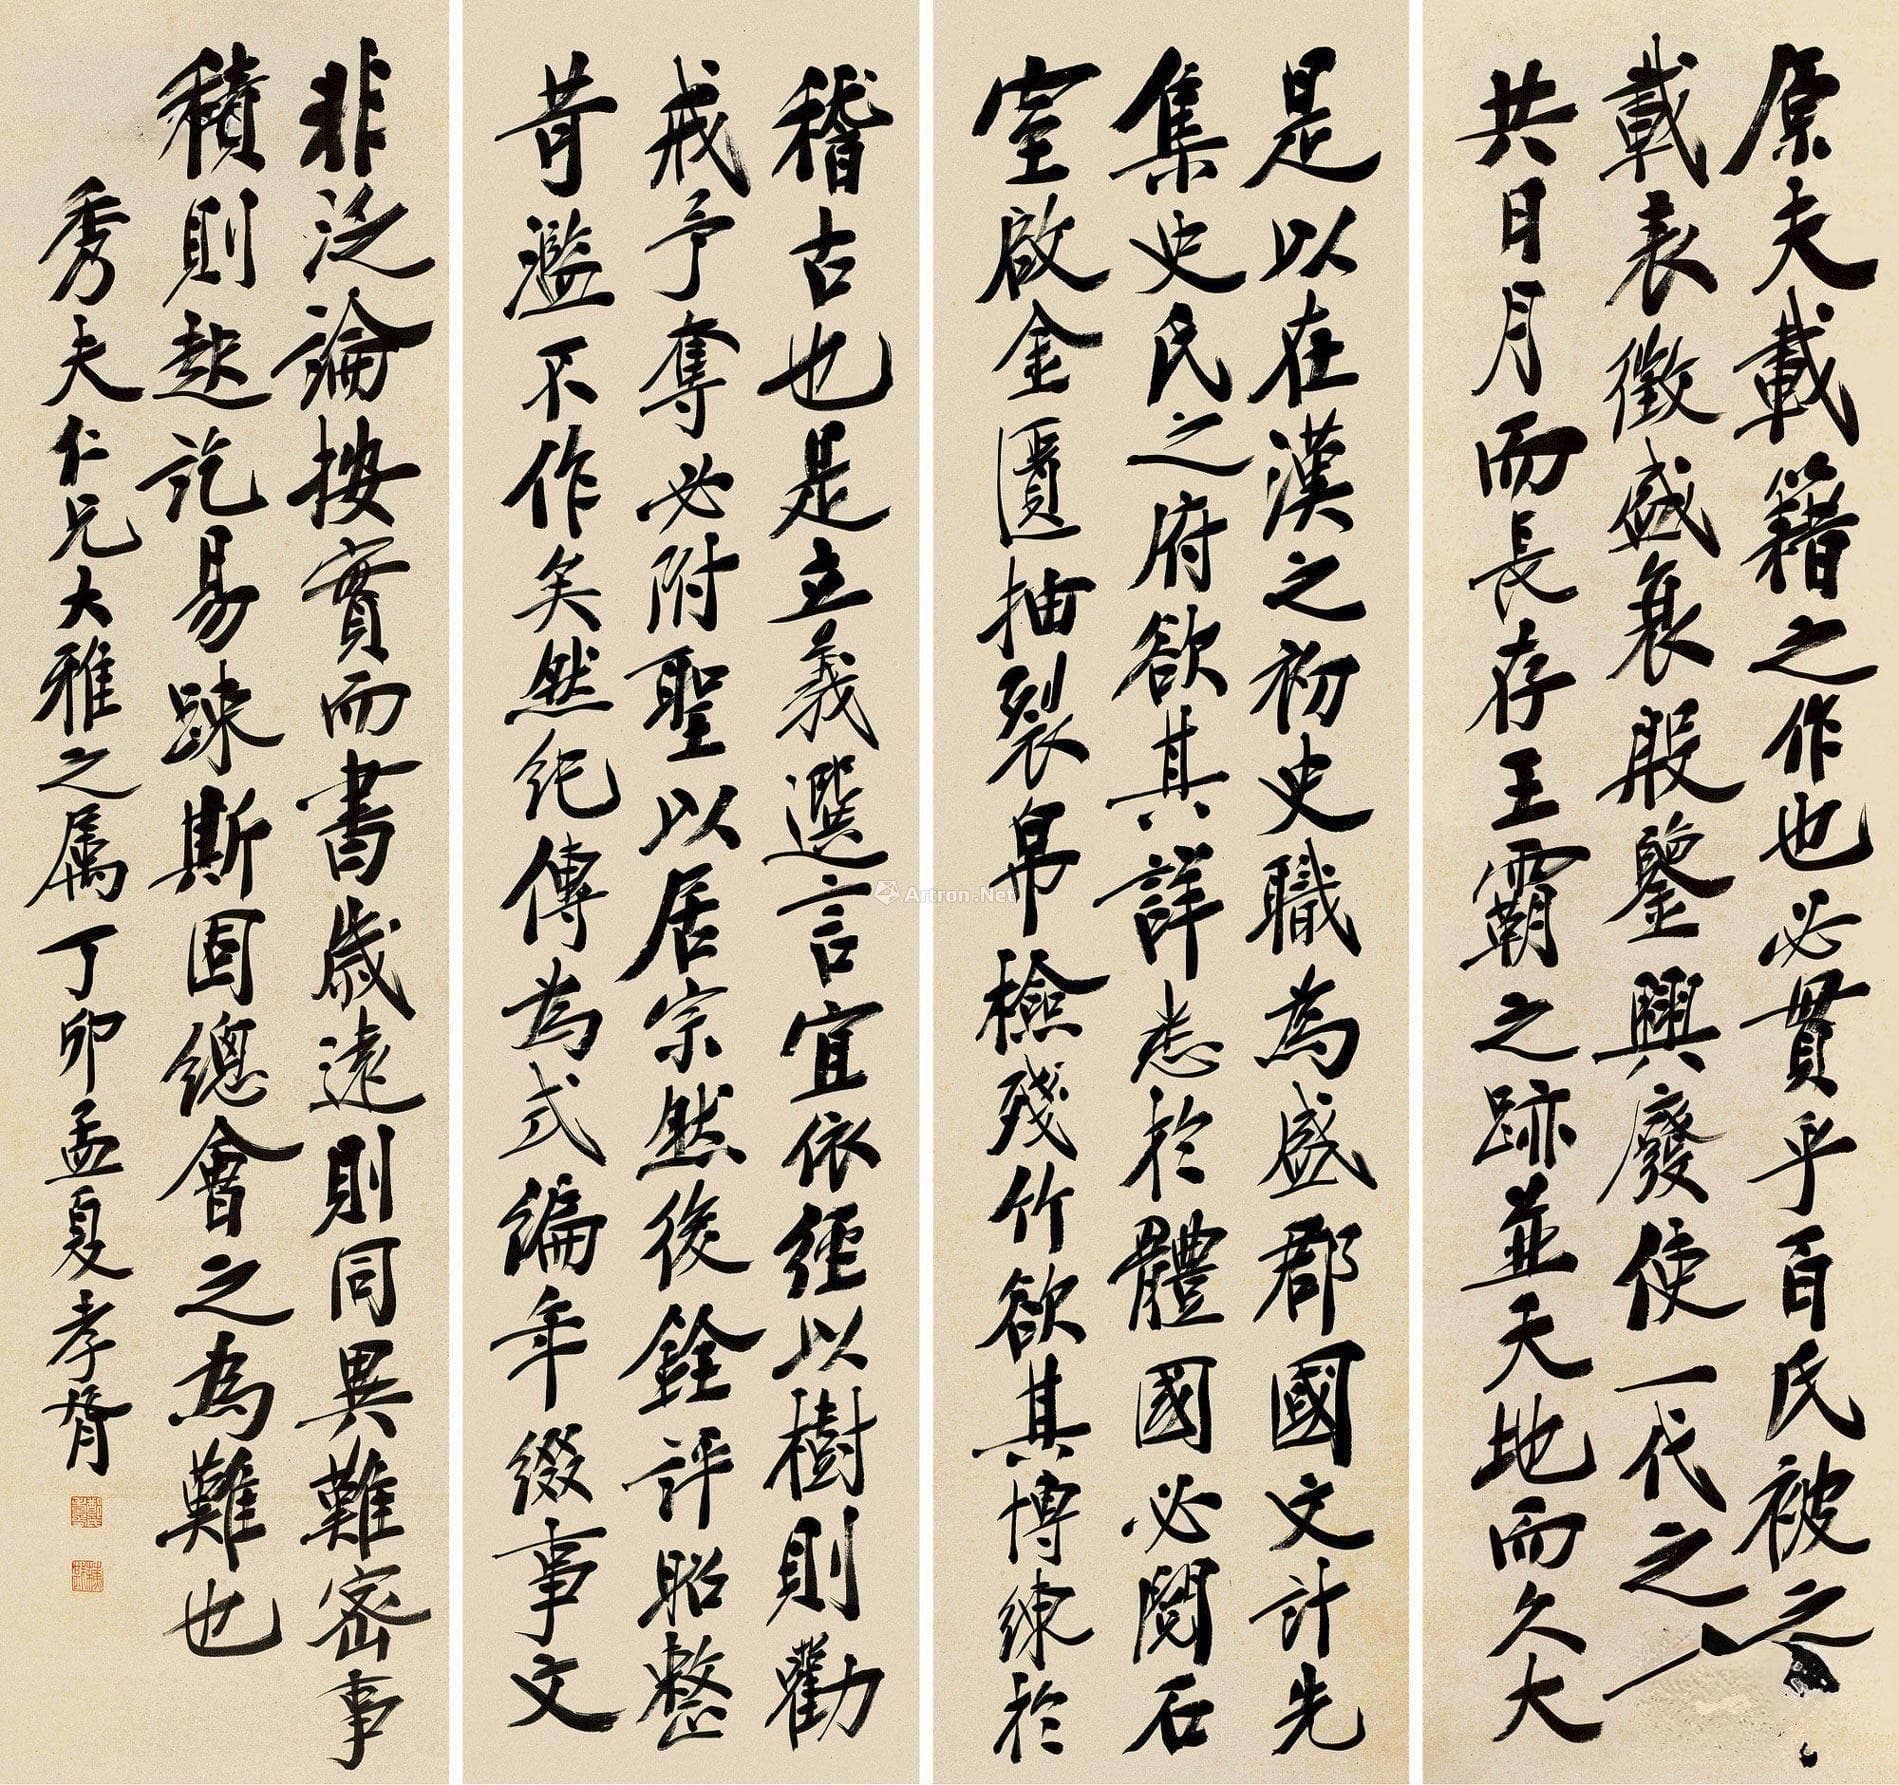 原夫載籍之作也必貫乎百氏被之
載表徵盛衰殷鑒興廢使一代之
共日月而長存王霸之跡並天地而久大
是以在漢之初史職為盛郡國文計先
集史氏之府欲其詳悉於體國必閱石
室啟金匱抽裂帛檢殘竹欲其博練於
稽古也是立義選言宜依經以樹則勸
戒予奪必附聖以居宗然後銓評昭整
苛濫不作矣然紀傳為式編年綴事文
非泛論按實而書歲遠則同異難密事
積則起訖易疎斯固總會之為難也
秀夫仁兄大雅之属丁卯孟夏孝胥
Artron.Net